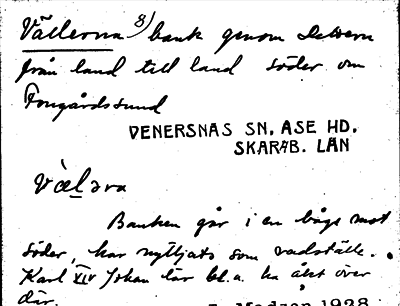 Vällerna 8) bank genom Delsern
från land till land söder om
Frugårdssund
VENERSNAS SN. ASE HD.
SKARAB. LÄN
väl̲əra
Banken går i en båge mot
söder, har nyttjats som vadställe.
Karl XIV Johan lär bl.a. ha åkt över
där.
1928